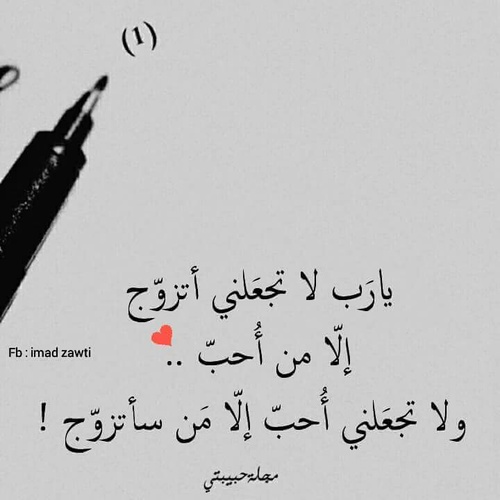 (1)
يارَب لا تجعَلني أتزوّج
إلّا من أُحبّ ..
Fb : imad zawti
ولا تجعَلني أُحبّ إلّا مَن سأتزوّج !
مجلة حبيبتي